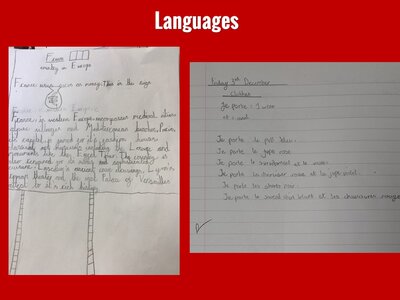 Languages
France
country in Europe
France uses euro as money. This is the
France in western Europe encompasses medieval cities
alpine villages and Mediterranean beaches. Paris,
its capital is famed for its fashion houses
classical art museums including the Louvre and
monuments like the Eiffel Tower. The country is
also renowned for its wines and sophisticated
cuisine. Lascaux's ancient cave drawings, Lyon's
roman theater and the vast Palace of Versailles
attest to its rich history
Friday 3rd December
Clothes
Je porte = I wear
et = and
Je porte le pull bleu.
Je porte la jupe rose
Je porte le
Je porte la chemise rose et la jupe violet
Je porte les shorts noir
Je porte le sweat shirt blanc et les chaussures rouge